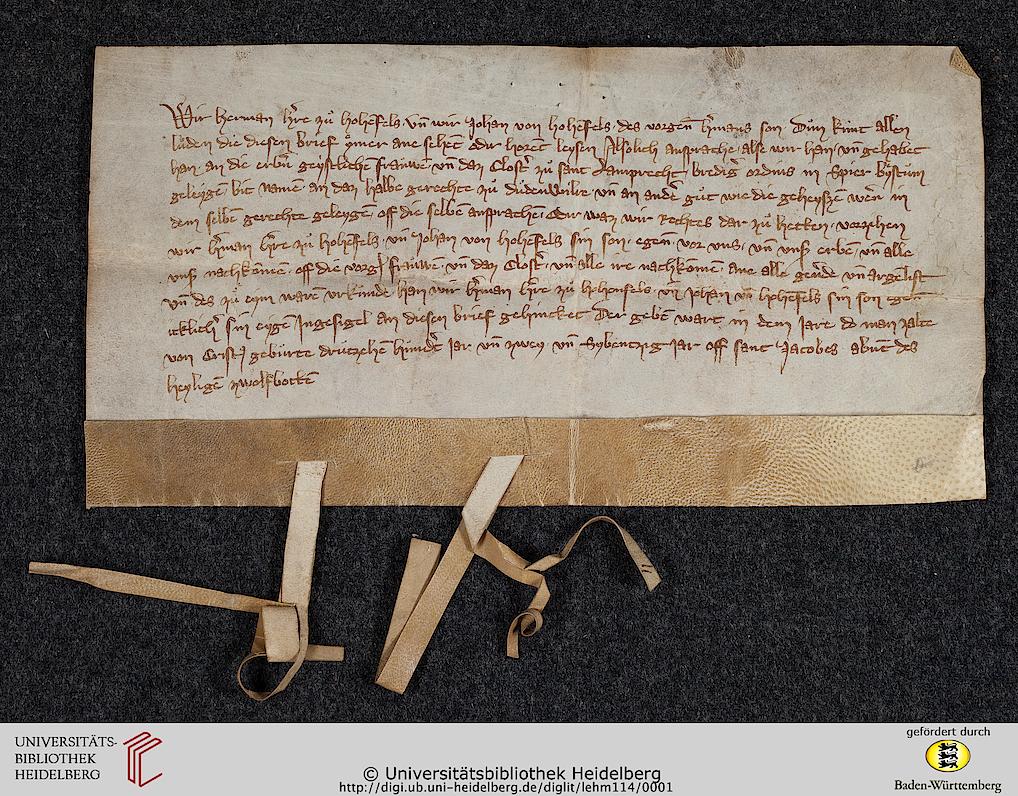 Wir Herman h're zů Hohefels vn̄ wir Johan von hohefels des vorgen̄ h'mans son Dům kunt allen
luden die diesen brief ȳmer ane sehēt odir horēt lesen Alsolich ansprache alse wir han vn̄ gehabet
han an die erbn̄ geystlichē frauwē vn̄ daz Clost' zů sant Lamprecht bredig' ordins in Spier Bystům
gelegen bit namē an daz halbe gerechte zů dudenwilre vn̄ an and' gůt wie die geheyszē wern in
dem selbē gerechte gelegen off die selbē ansprachen odir waz wir rechtes dar zů hetten vorzihen
wir h'man h're zů hohefels vn̄ Johan von hohefels sin son egen̄ vor vns vn̄ vns' erbē vn̄ alle
vns' nachkōmen off die vorg' frauwē vn̄ daz Clost' vn̄ alle ire nachkōmen ane alle geu'de vn̄ argelist
vn̄ des zů eym warē vrkunde han wir h'man h're zů hohenfels vn̄ Johan vō hohefels sin son
icklich' sin eygē Ingesigel an diesen brief gehencket Der gebē wart in dem Jare do man zalte
von Cristi gebürte drutzehen hund't Jar vn̄ zwey vn̄ sybentzig Jar off sant Jacobes abent des
heyligē zwolfbottē
UNIVERSITÄTS-
BIBLIOTHEK
HEIDELBERG
© Universitätsbibliothek Heidelberg
http://digi.ub.uni-heidelberg.de/diglit/lehm114/0001
gefördert durch
Baden-Württemberg